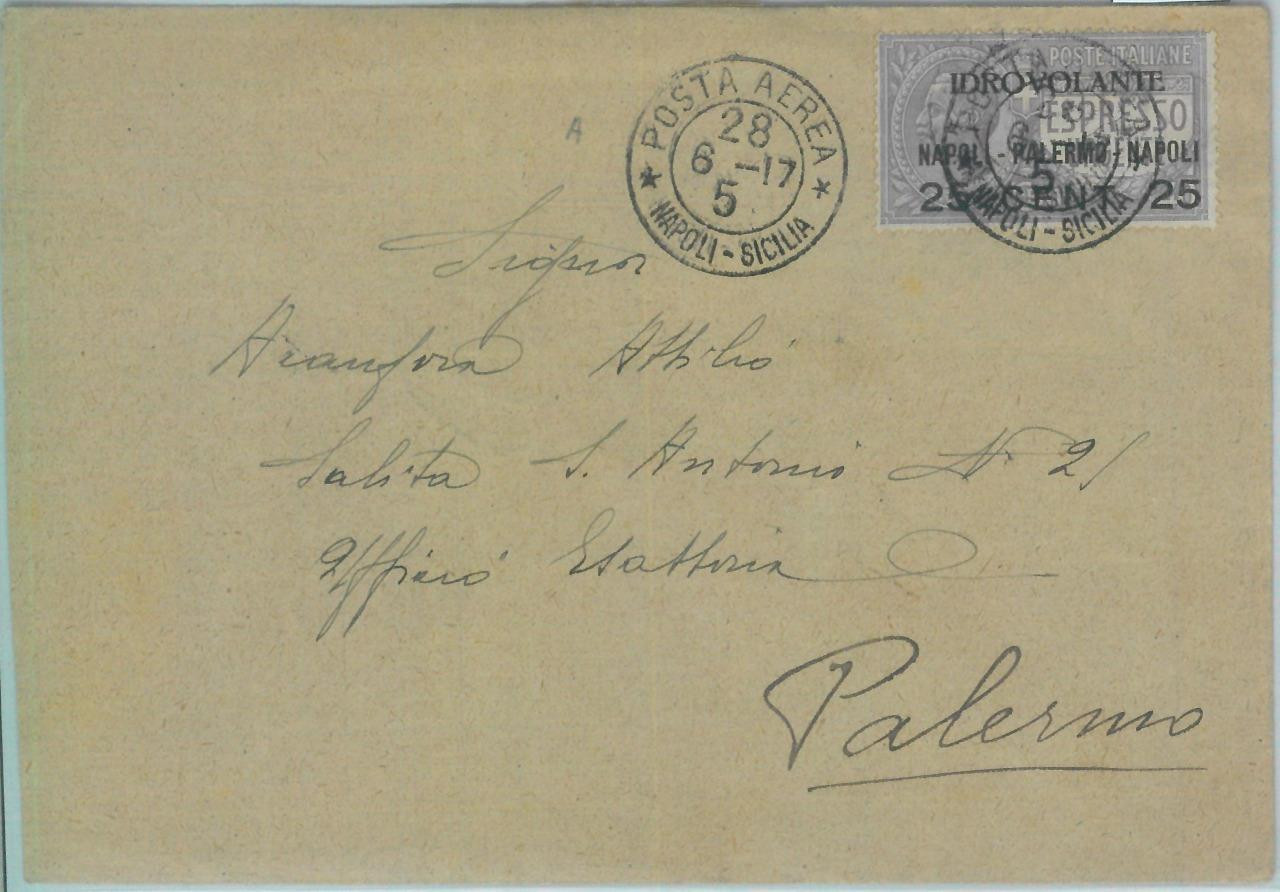 POSTE ITALIANE
IDROVOLANTE
ESPRESSO
NAPOLI - PALERMO - NAPOLI
25 CENT. 25
★ POSTA AEREA ★
28
6 - 17
5
NAPOLI - SICILIA
POSTA
5
NAPOLI - SICILIA
A
Signor
Attilio
Salita S. Antonio N. 21
Ufficio Esattoria
Palermo